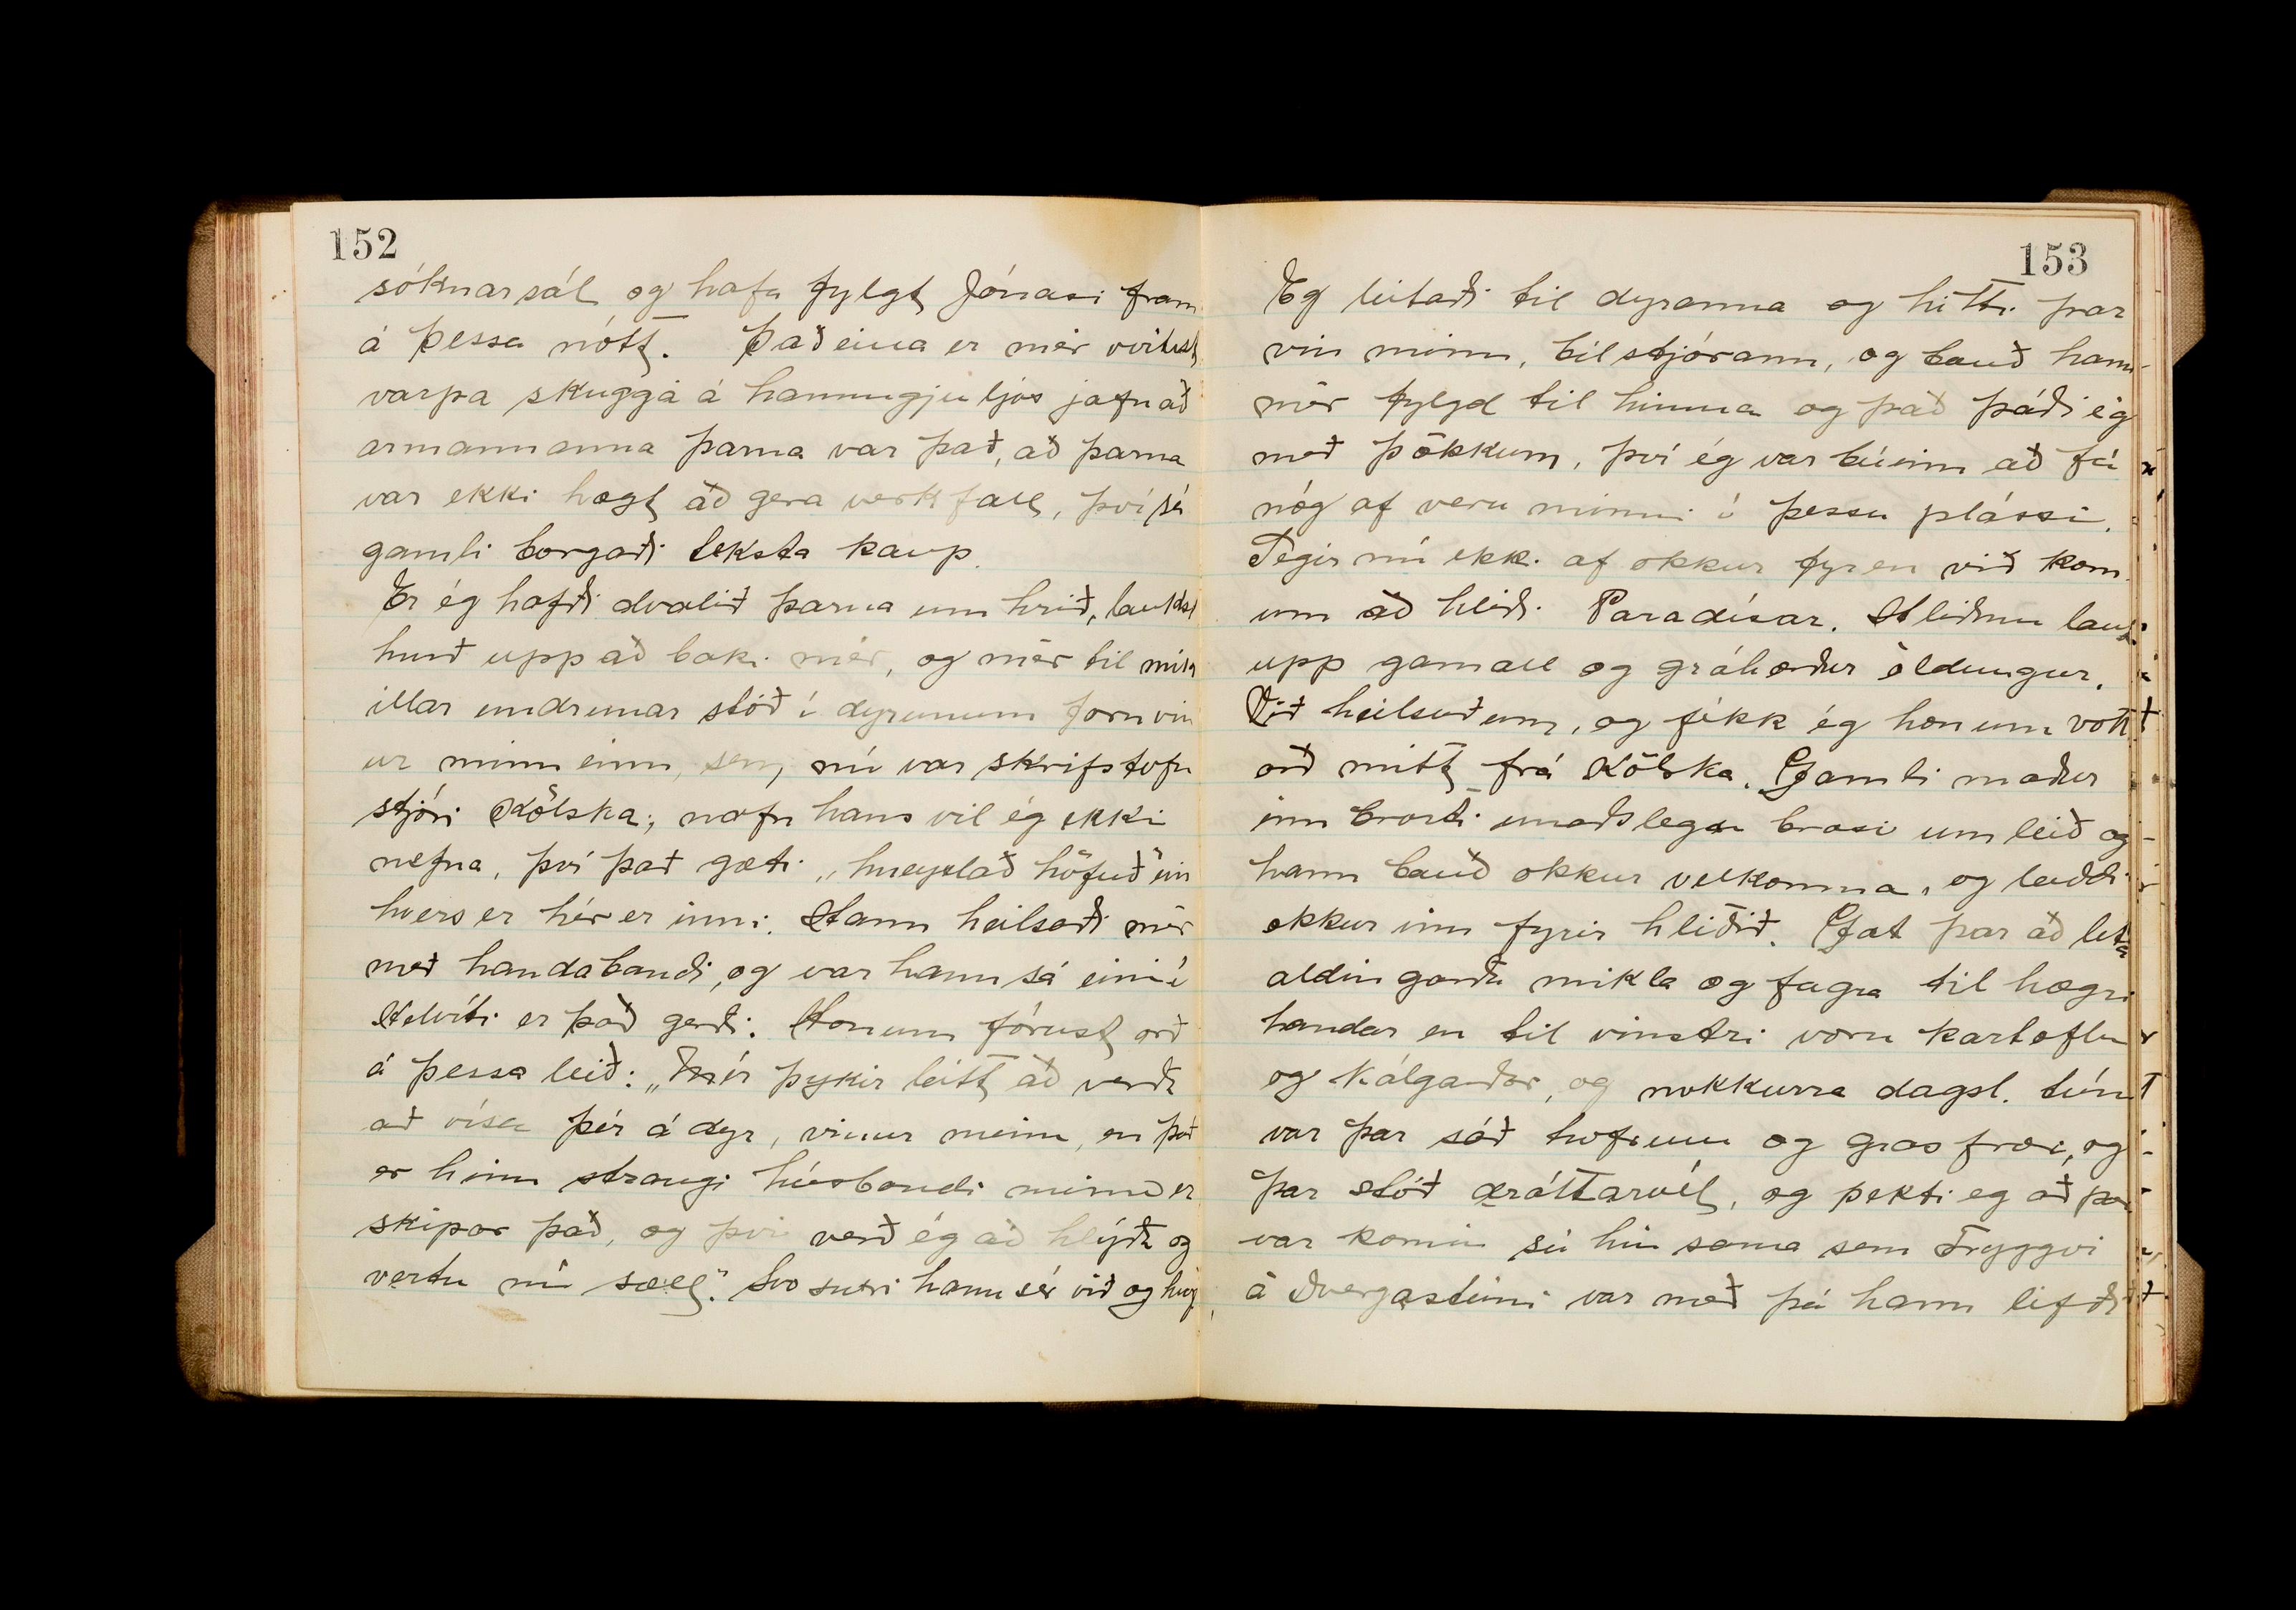 152
sóknarsál og hafa fylgt Jónasi fram
á þessa nótt. Það eina er mér virtist
varpa skugga á hamingju ljós jafnað
armannanna þarna var það, að þarna
var ekki hægt að gera verkfall, því sá
gamli borgaði teksta kaup.
Er ég hafði dvalið þarna um hríð, laukst
hurð upp að baki mér, og mér til mik
illar undrunar stóð í dyrunum fornvin
ur minn einn, sem nú var skrifstofu
stjóri Kölska; nafn hans vil ég ekki
nefna, því það gæti „hneyxlað höfuð" ein
hvers er hér er inni. Hann heilsaði mér
með handabandi, og var hann sá eini í
Helvíti er það gerði. Honum fórust orð
á þessa leið: „Mér þykir leitt að verða
að vísa þér á dyr, vinur minn, en það
er hinn strangi húsbondi minn er
skipar það, og því verð ég að hlýða og
vertu nú sæll". Svo sneri hann sér við og hvarf
153
Eg leitaði til dyranna og hitti þar
vin minn, bílstjórann, og bauð hann
mér fylgd til himna og það þáði ég
með þökkum, því ég var búinn að fá
nóg af veru minni í þessu plássi.
Segir nú ekki af okkur fyr en við kom
um að hliði Paradísar. Hliðinu lauk
upp gamall og gráhærður öldungur.
Við heilsuðum, og fékk ég honum vott
orð mitt frá Kölska. Gamli maður
inn brosti unaðslegu brosi um leið og
hann bauð okkur velkomna, og leiddi
okkur inn fyrir hliðið. Gat þar að líta
aldingarða mikla og fagra til hægri
handar en til vinstri voru kartöflu
og kálgarðar, og nokkurra dagsl. tún
var þar sáð höfrum og gras fræi, og
þar stóð dráttarvél, og þekti eg að þar
var komin sú hin sama sem Tryggvi
á Dvergasteini var með þá hann lifði